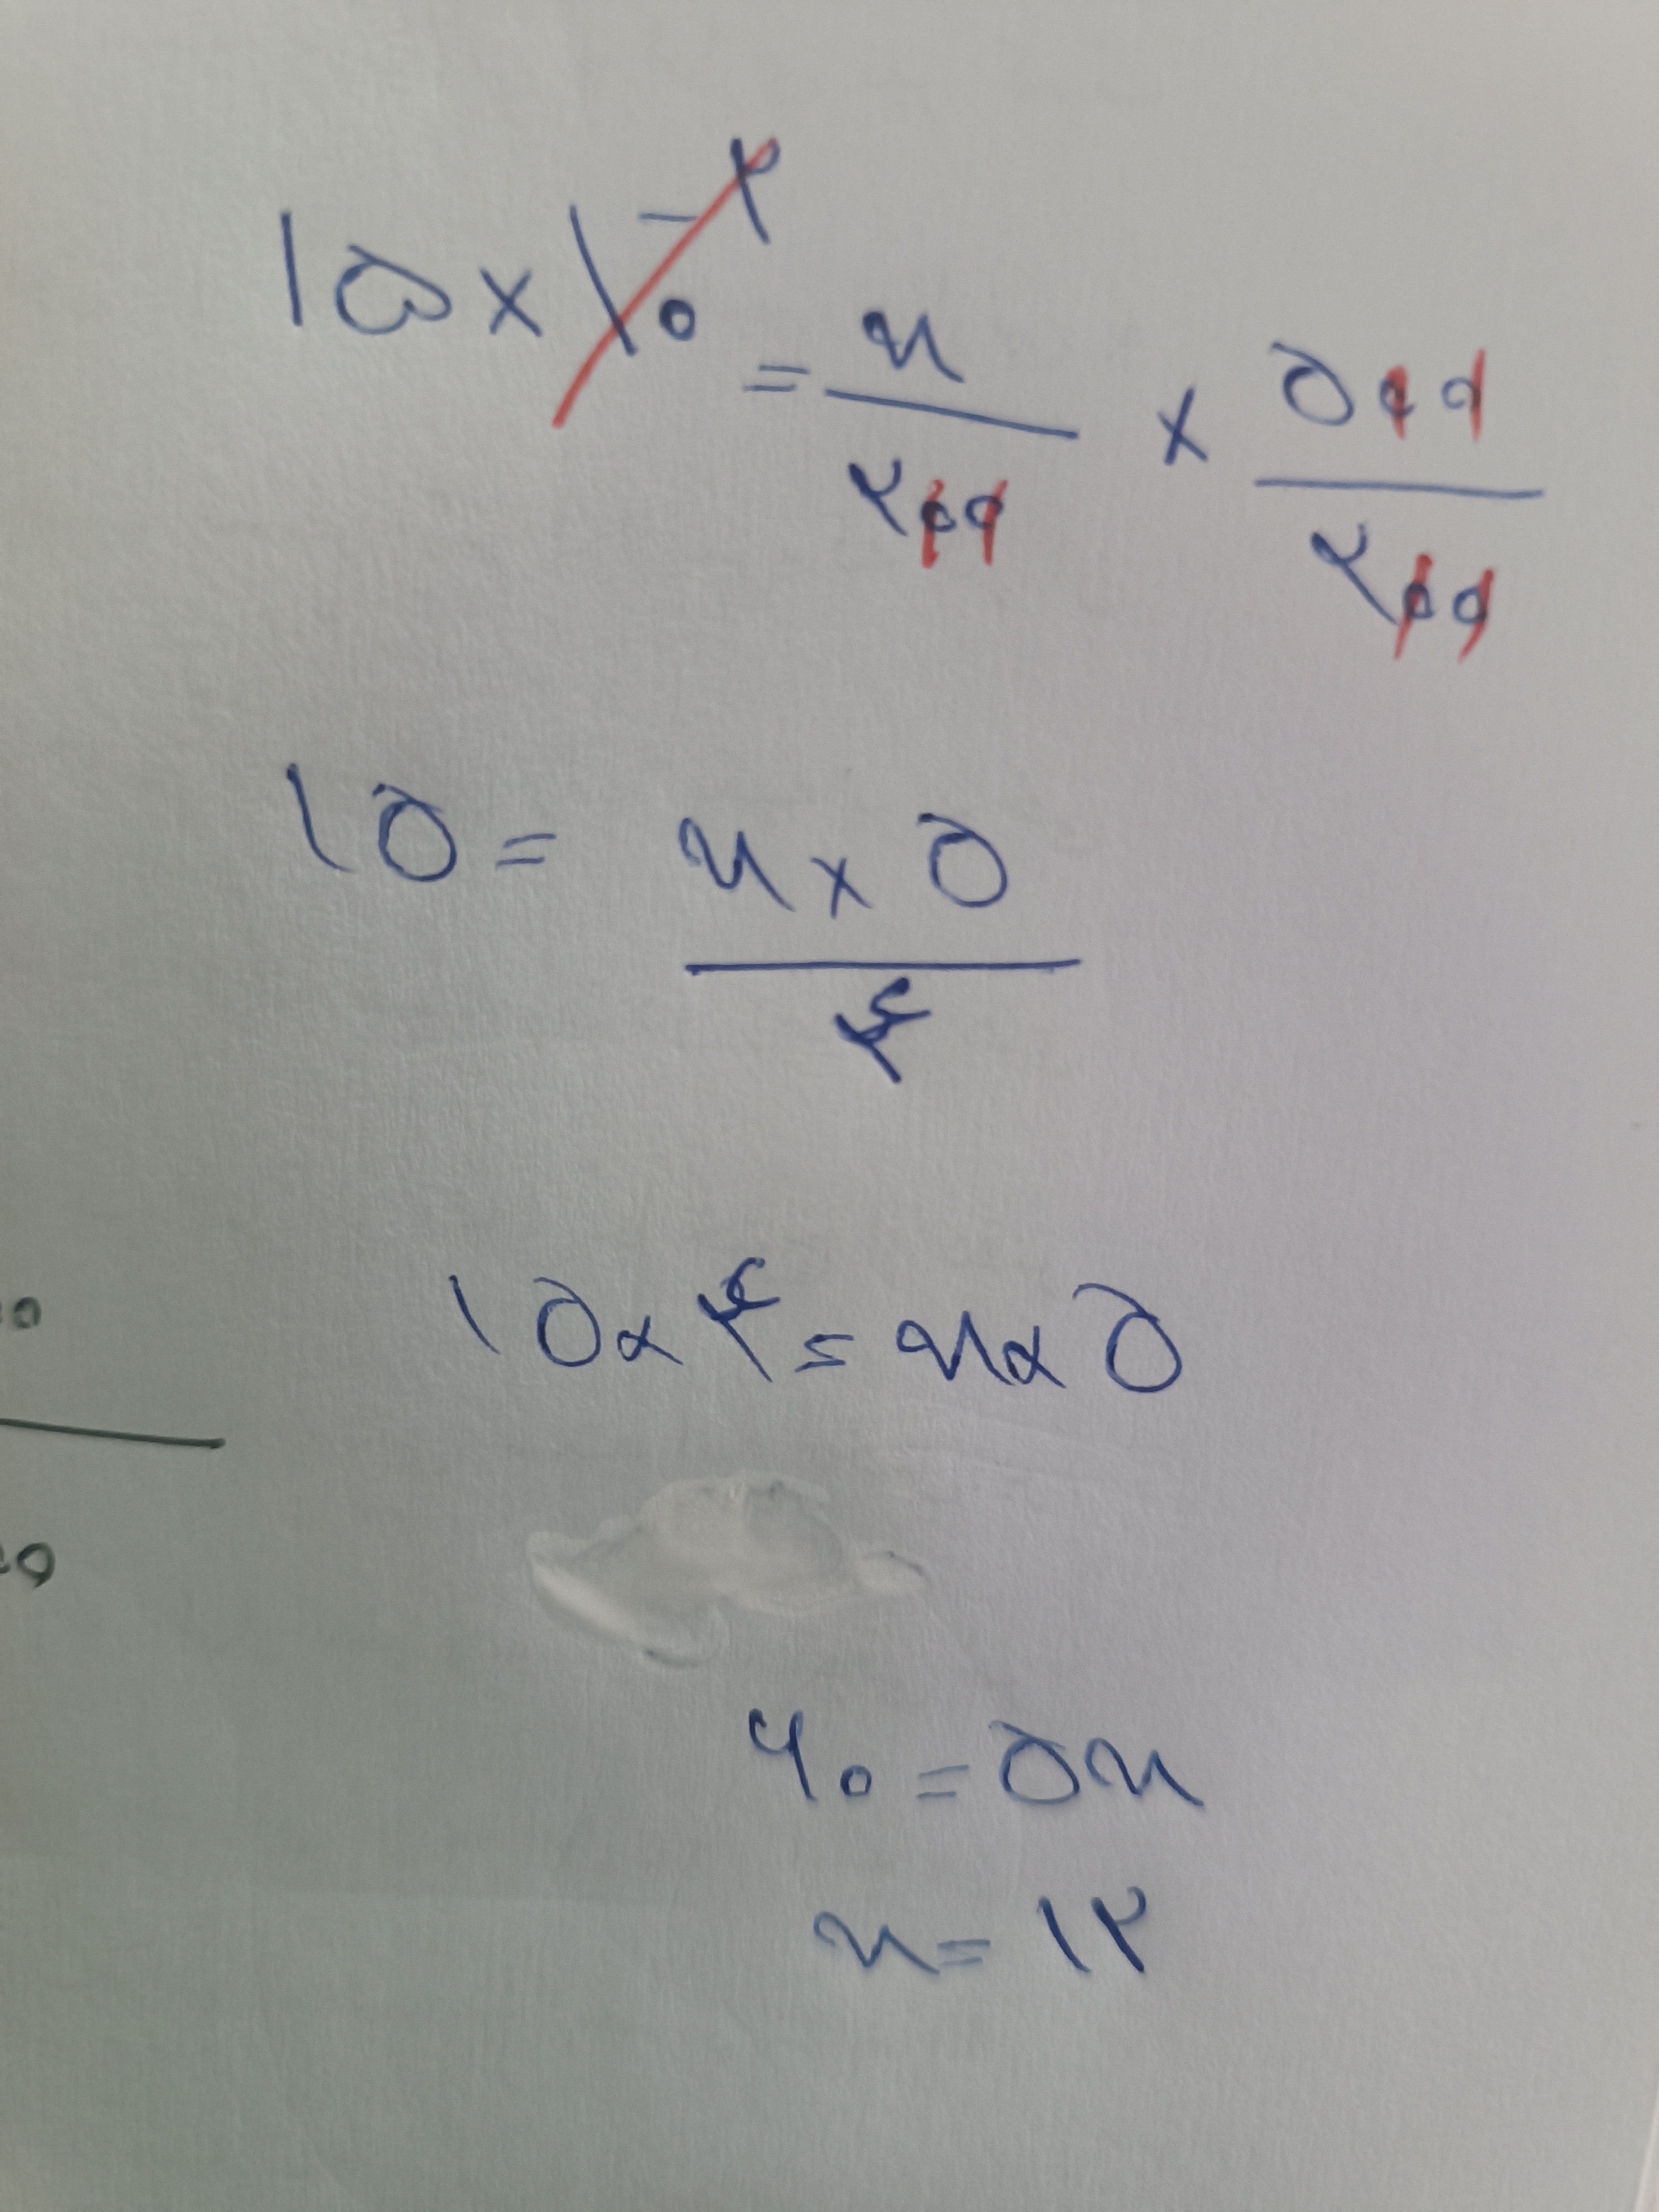 ۱۵ × ۱۰^-۲ = x/۲۰۰ × ۵۰۰/۲۰۰
۱۵ = x × ۵/۴
۱۵ × ۴ = x × ۵
۶۰ = ۵x
x = ۱۲